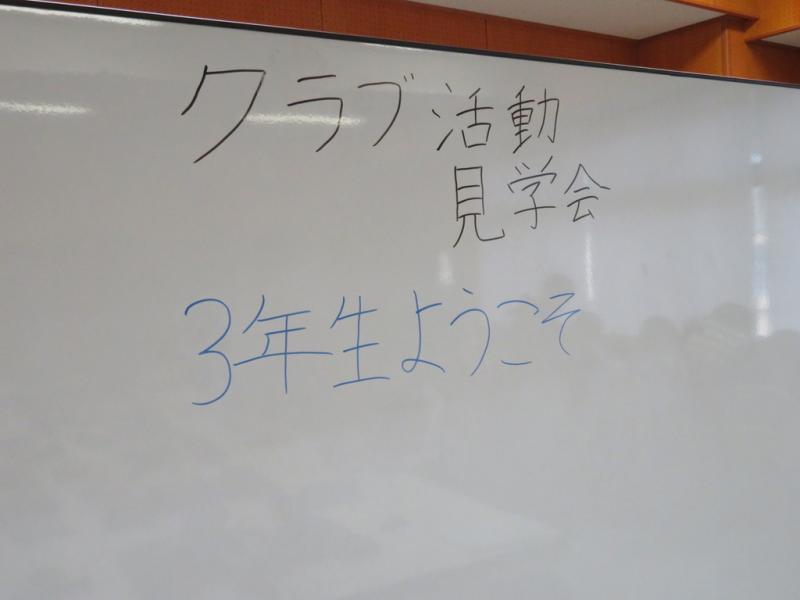 クラブ活動
見学会
3年生ようこそ